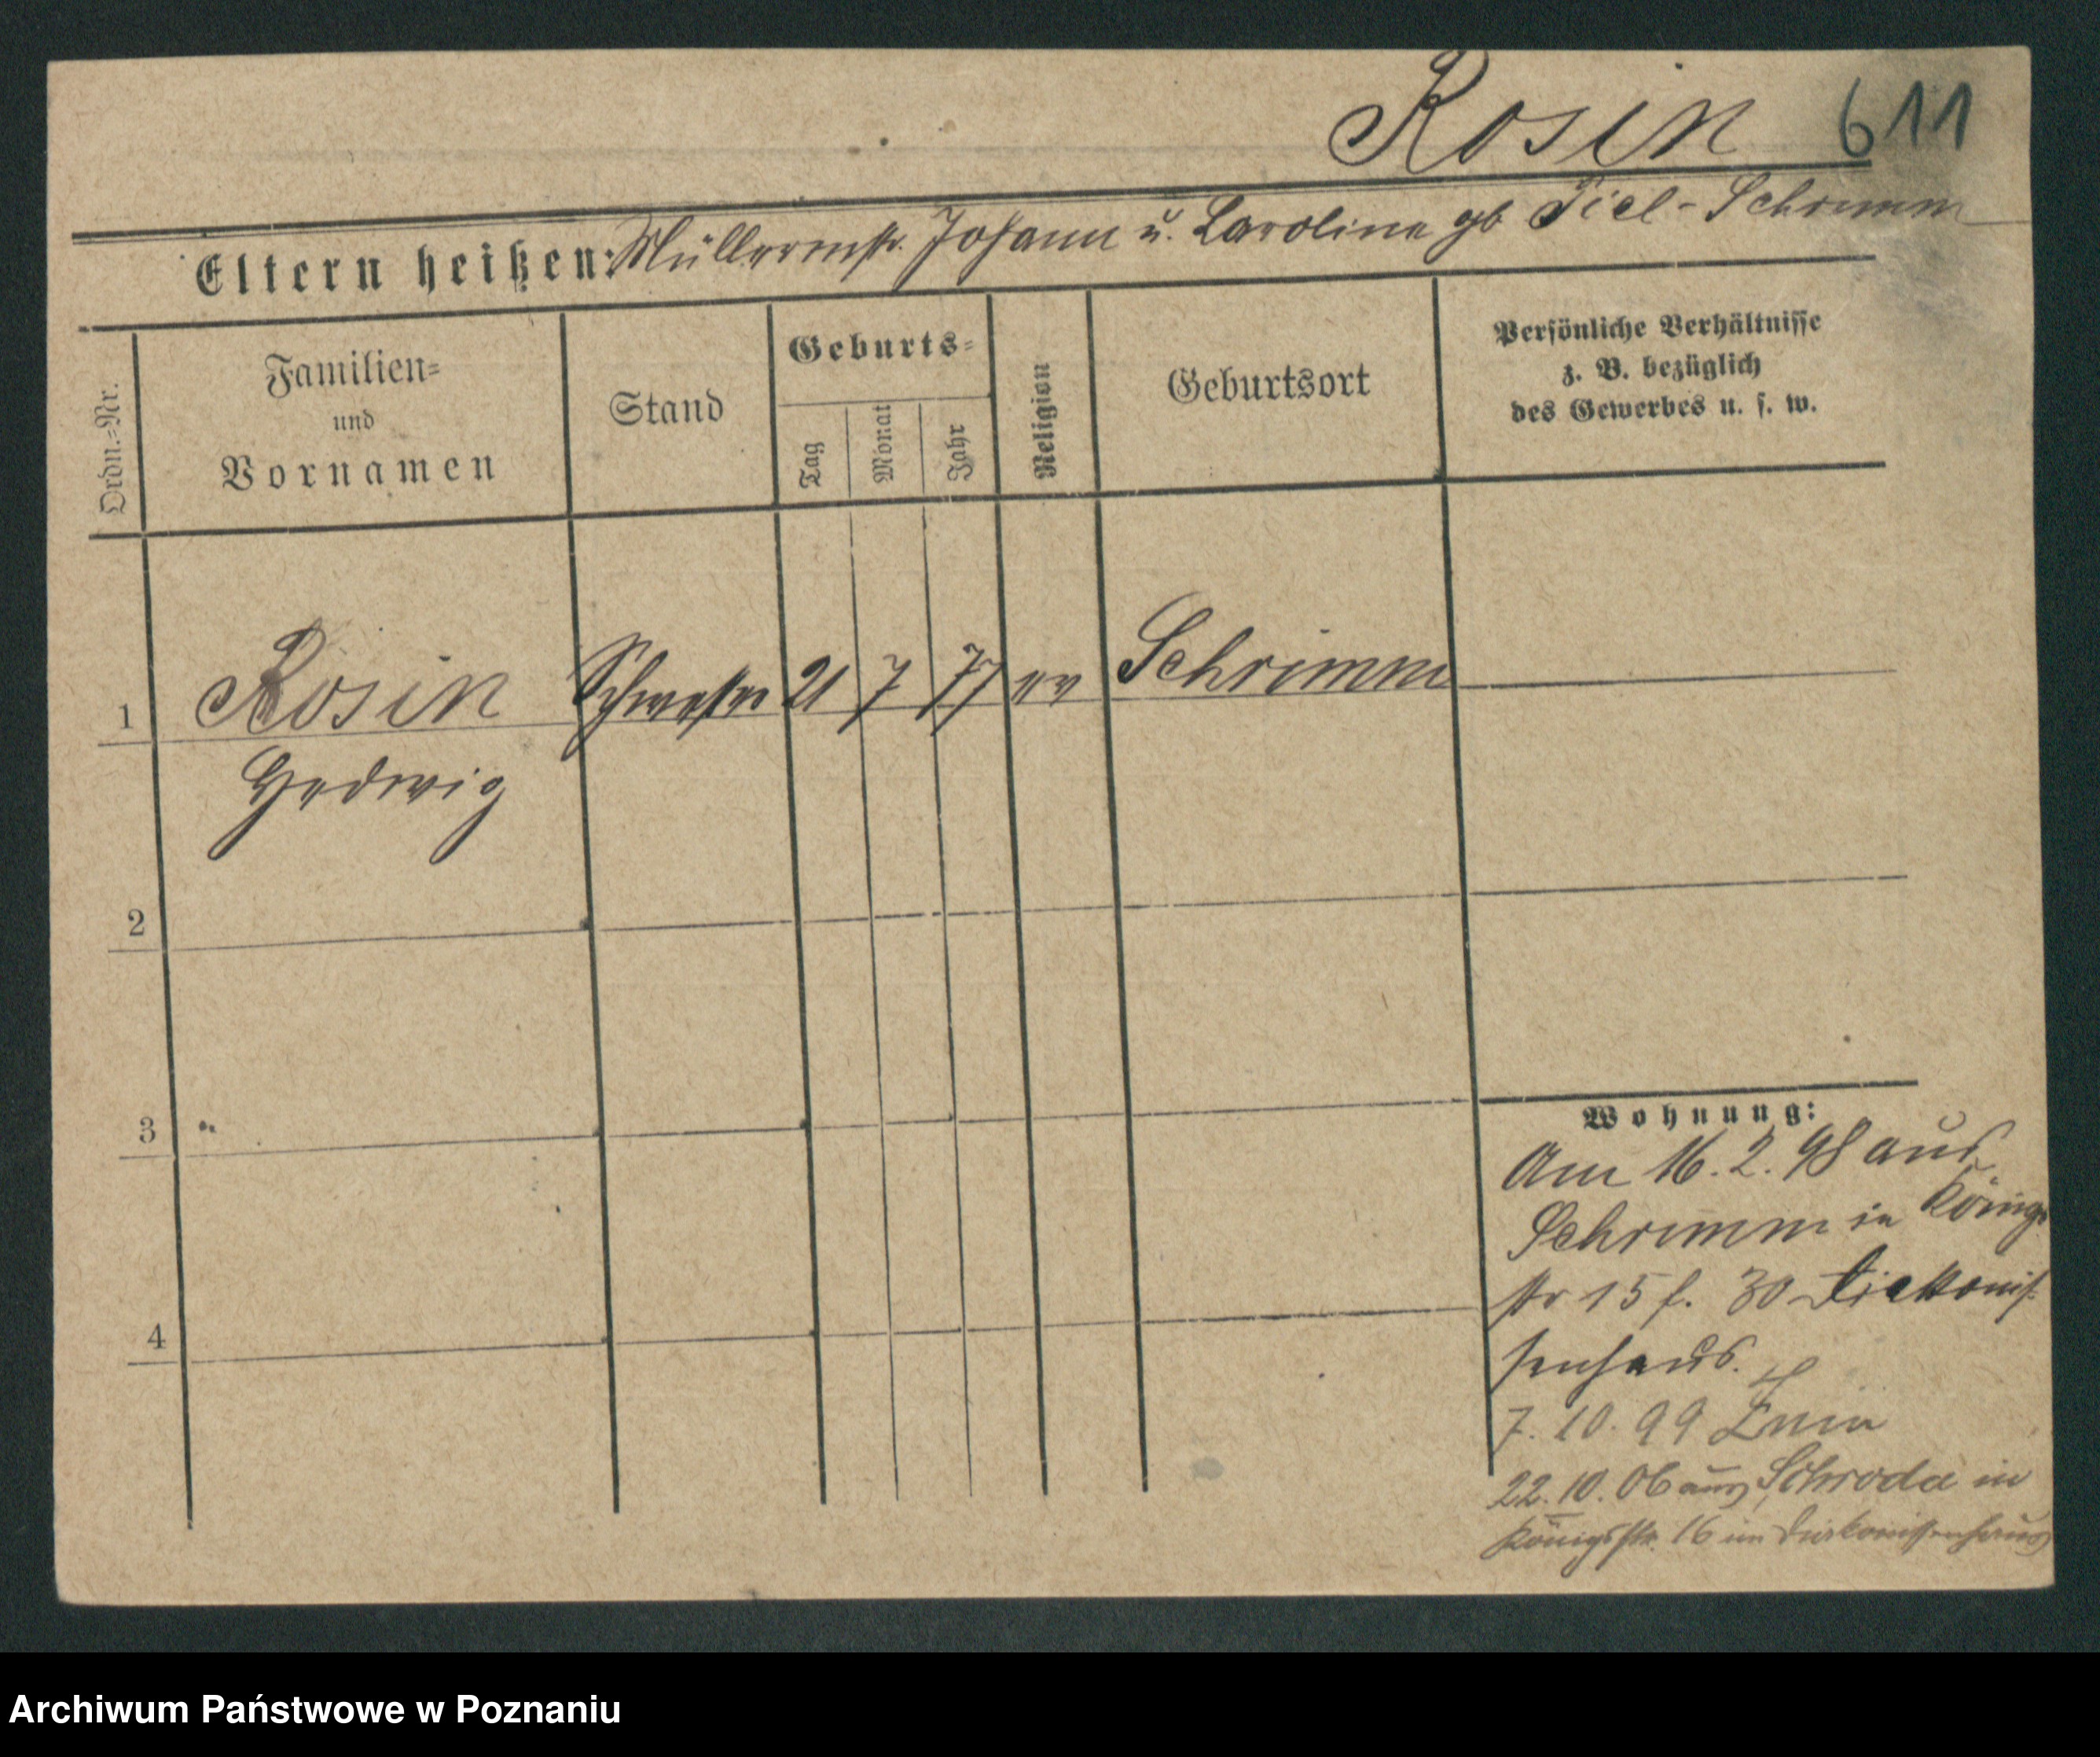 Rosin 611
Eltern heißen: Müllermstr. Johann u. Caroline gb Tiel - Schrimm
Ordn.-Nr.
Familien-
und
Vornamen
Stand
Geburts-
Tag
Monat
Jahr
Religion
Geburtsort
Persönliche Verhältnisse
z. B. bezüglich
des Gewerbes u. s. w.
1 Rosin Schwester 21 7 77 ev Schrimm
Hedwig
2
3
4
Wohnung:
Am 16. 2. 98 aus
Schrimm in Königs
str 15 b. 30 Diakonis-
senhaus.
7. 10. 99 Znin
22. 10. 06 aus Schroda in
Königsstr. 16 im Diakonissenhaus
Archiwum Państwowe w Poznaniu